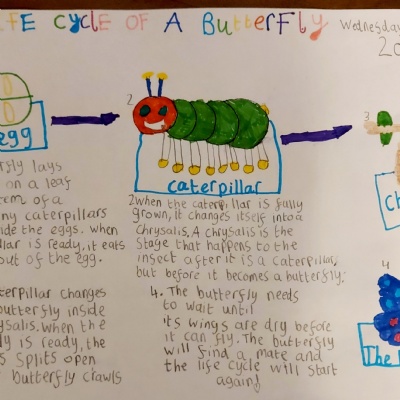 IFE CYCLE OF A BUTTERFLY
Wednesday
egg
2
caterpillar
3
rfly lays
on a leaf
tem of a
ny caterpillars
ide the eggs. When
llar is ready, it eats
out of the egg.
2 When the caterpillar is fully
grown, it changes itself into a
Chrysalis. A chrysalis is the
Stage that happens to the
insect after it is a caterpillar,
but before it becomes a butterfly.
terpillar changes
butterfly inside
ysalis. When the
ly is ready, the
s splits open
butterfly crawls
4. The butterfly needs
to wait until
its wings are dry before
it can fly. The butterfly
will find a mate and
the life cycle will start
again!
4
The